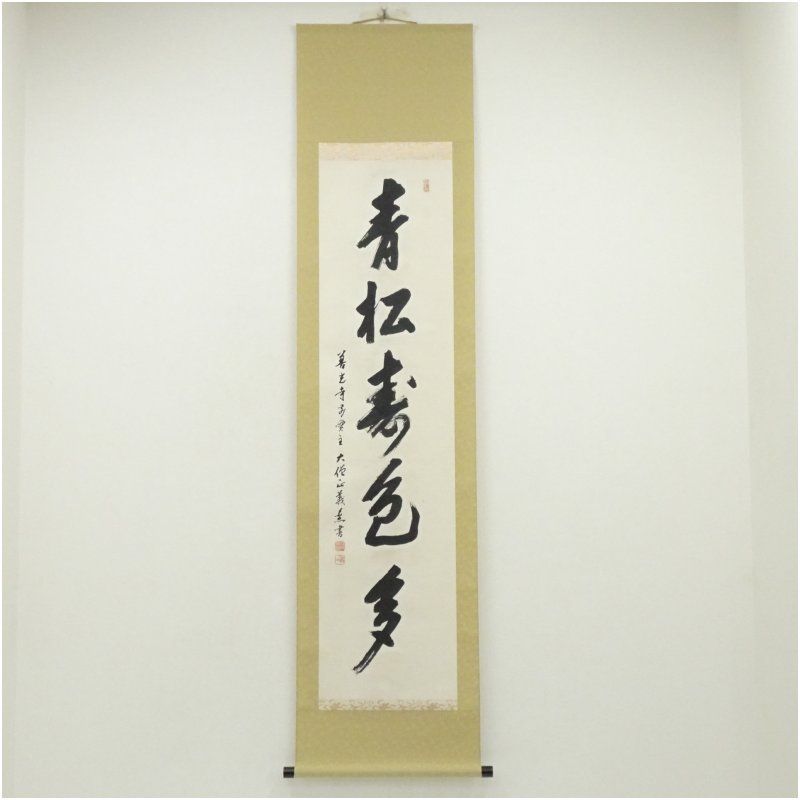 青松寿色多
善光寺貫主 大僧正義応書